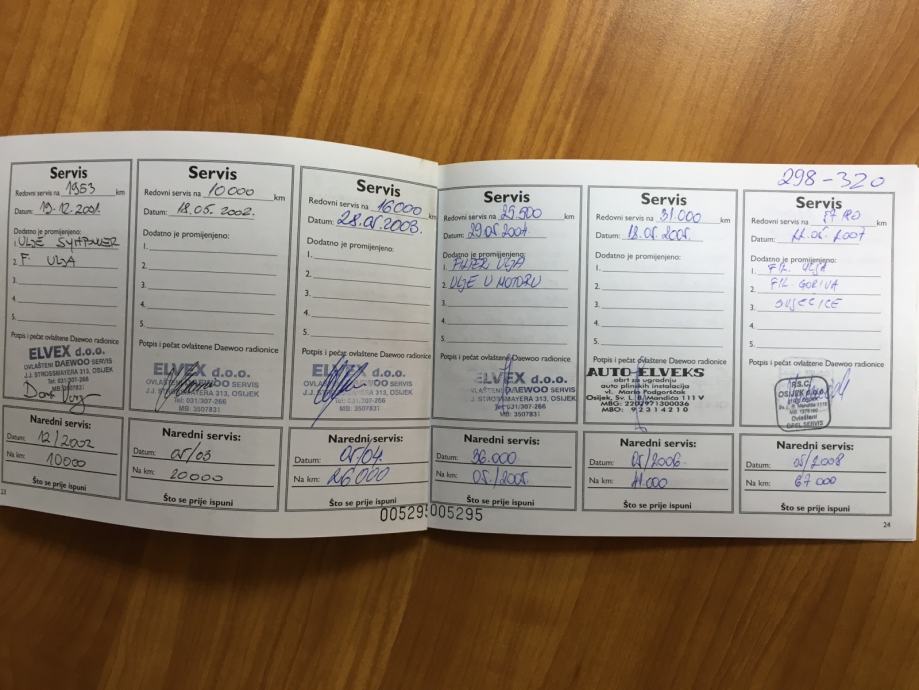 Servis
Redovni servis na 1953 km
Datum: 19.12.2001.
Dodatno je promijenjeno:
1. ULJE SYMPOWER
2. F. ULJA
3.
4.
5.
Potpis i pečat ovlaštene Daewoo radionice
ELVEX d.o.o.
OVLAŠTENI DAEWOO SERVIS
J.J. STROSSMAYERA 313, OSIJEK
Tel: 031/307-266
MB: 3507831
Naredni servis:
Datum: 12/2002
Na km: 10000
Što se prije ispuni
23
Servis
Redovni servis na 10000 km
Datum: 18.05.2002.
Dodatno je promijenjeno:
1.
2.
3.
4.
5.
Potpis i pečat ovlaštene Daewoo radionice
ELVEX d.o.o.
OVLAŠTENI DAEWOO SERVIS
J.J. STROSSMAYERA 313, OSIJEK
Tel: 031/307-266
MB: 3507831
Naredni servis:
Datum: 05/03
Na km: 20000
Što se prije ispuni
Servis
Redovni servis na 16000 km
Datum: 28.05.2003.
Dodatno je promijenjeno:
1.
2.
3.
4.
5.
Potpis i pečat ovlaštene Daewoo radionice
ELVEX d.o.o.
OVLAŠTENI DAEWOO SERVIS
J.J. STROSSMAYERA 313, OSIJEK
Tel: 031/307-266
MB: 3507831
Naredni servis:
Datum: 05/04.
Na km: 26000
Što se prije ispuni
005295
Servis
Redovni servis na 25.500 km
Datum:
Dodatno je promijenjeno:
1. FILTER ULJA
2. ULJE U MOTORU
3.
4.
5.
Potpis i pečat ovlaštene Daewoo radionice
ELVEX d.o.o.
OVLAŠTENI DAEWOO SERVIS
J.J. STROSSMAYERA 313, OSIJEK
Tel: 031/307-266
MB: 3507831
Naredni servis:
Datum: 36.000
Na km: 05/2005.
Što se prije ispuni
005295
Servis
Redovni servis na 31.000 km
Datum: 18.05.2005.
Dodatno je promijenjeno:
1.
2.
3.
4.
5.
Potpis i pečat ovlaštene Daewoo radionice
AUTO-ELVEKS
obrt za ugradnju
auto plinskih instalacija
vl. Mario Podgorščak
Osijek, Sv. L. B. Mandića 111 V
MBG: 2202971300036
MBO: 92314210
Naredni servis:
Datum: 05/2006.
Na km: 41000
Što se prije ispuni
298-320
Servis
Redovni servis na km
Datum: 05. 2007
Dodatno je promijenjeno:
1. FIL. ULJA
2. FIL. GORIVA
3. SVJEĆICE
4.
5.
Potpis i pečat ovlaštene Daewoo radionice
OSIJEK d.o.o.
Ovlašteni
OPEL SERVIS
Naredni servis:
Datum: 05/2008
Na km: 67 000
Što se prije ispuni
24